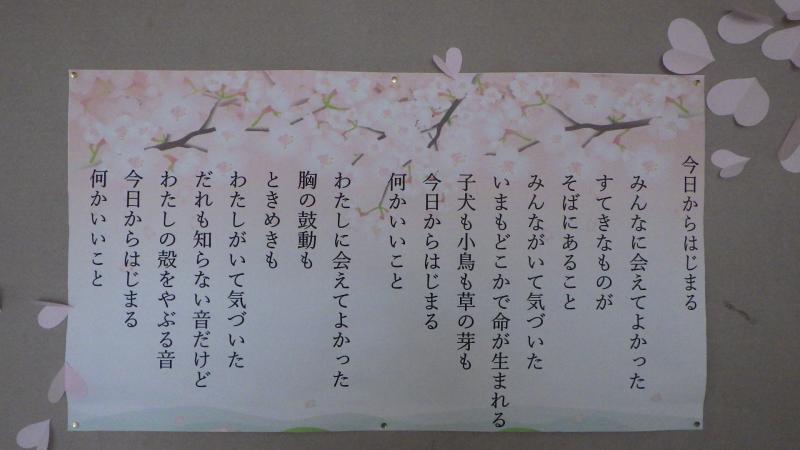 今日からはじまる
みんなに会えてよかった
すてきなものが
そばにあること
みんながいて気づいた
いまもどこかで命が生まれる
子犬も小鳥も草の芽も
今日からはじまる
何かいいこと
わたしに会えてよかった
胸の鼓動も
ときめきも
わたしがいて気づいた
だれも知らない音だけど
わたしの殻をやぶる音
今日からはじまる
何かいいこと